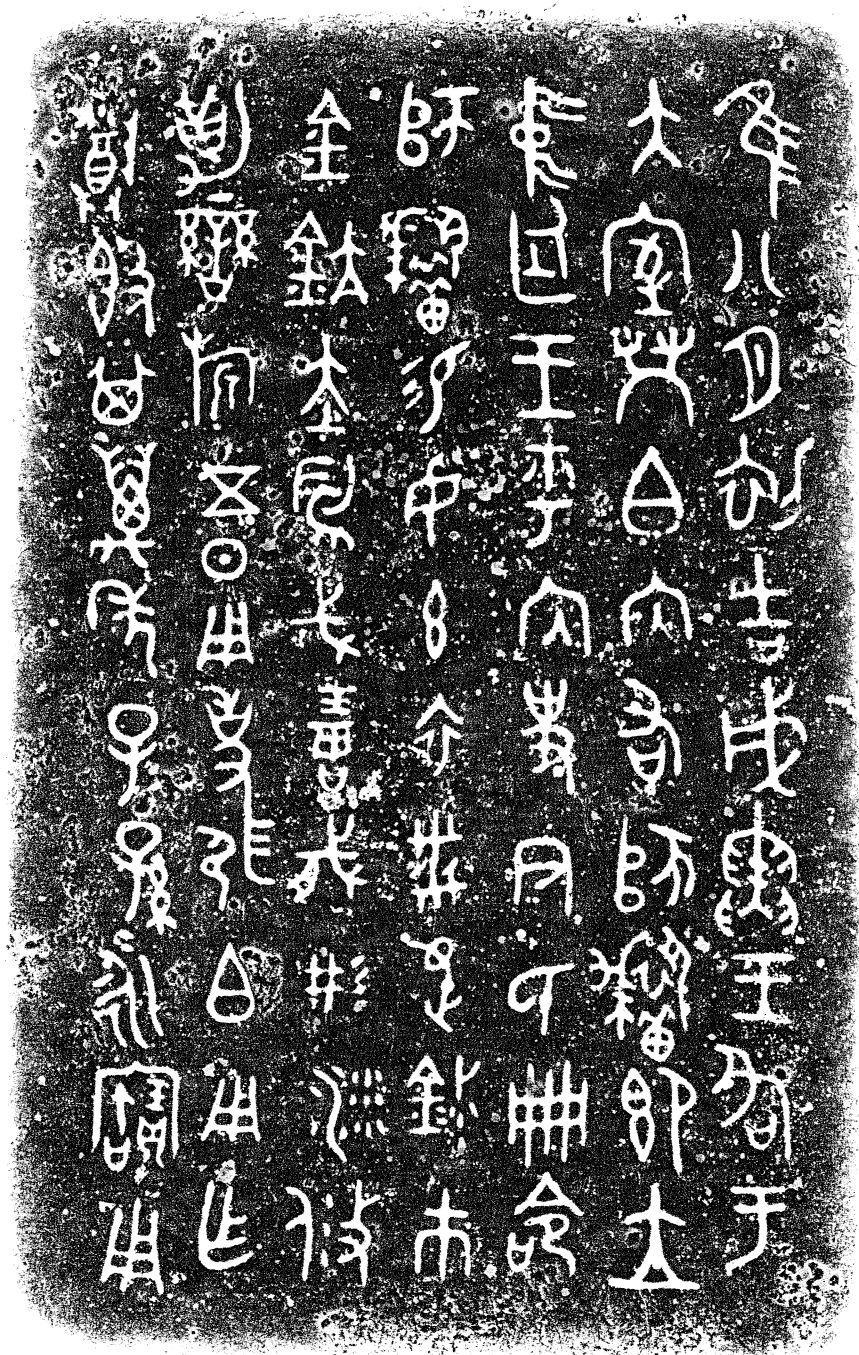 隹八月初吉戊寅王各于
大室焚白內右師耤即立
中廷王乎內史尹氏冊命
師耤易女玄衣黹屯巿
金鈧赤舄戈琱㦸彤沙攸
勒䜌旂五日用事弭白用乍
尊簋其萬年子孫永寶用